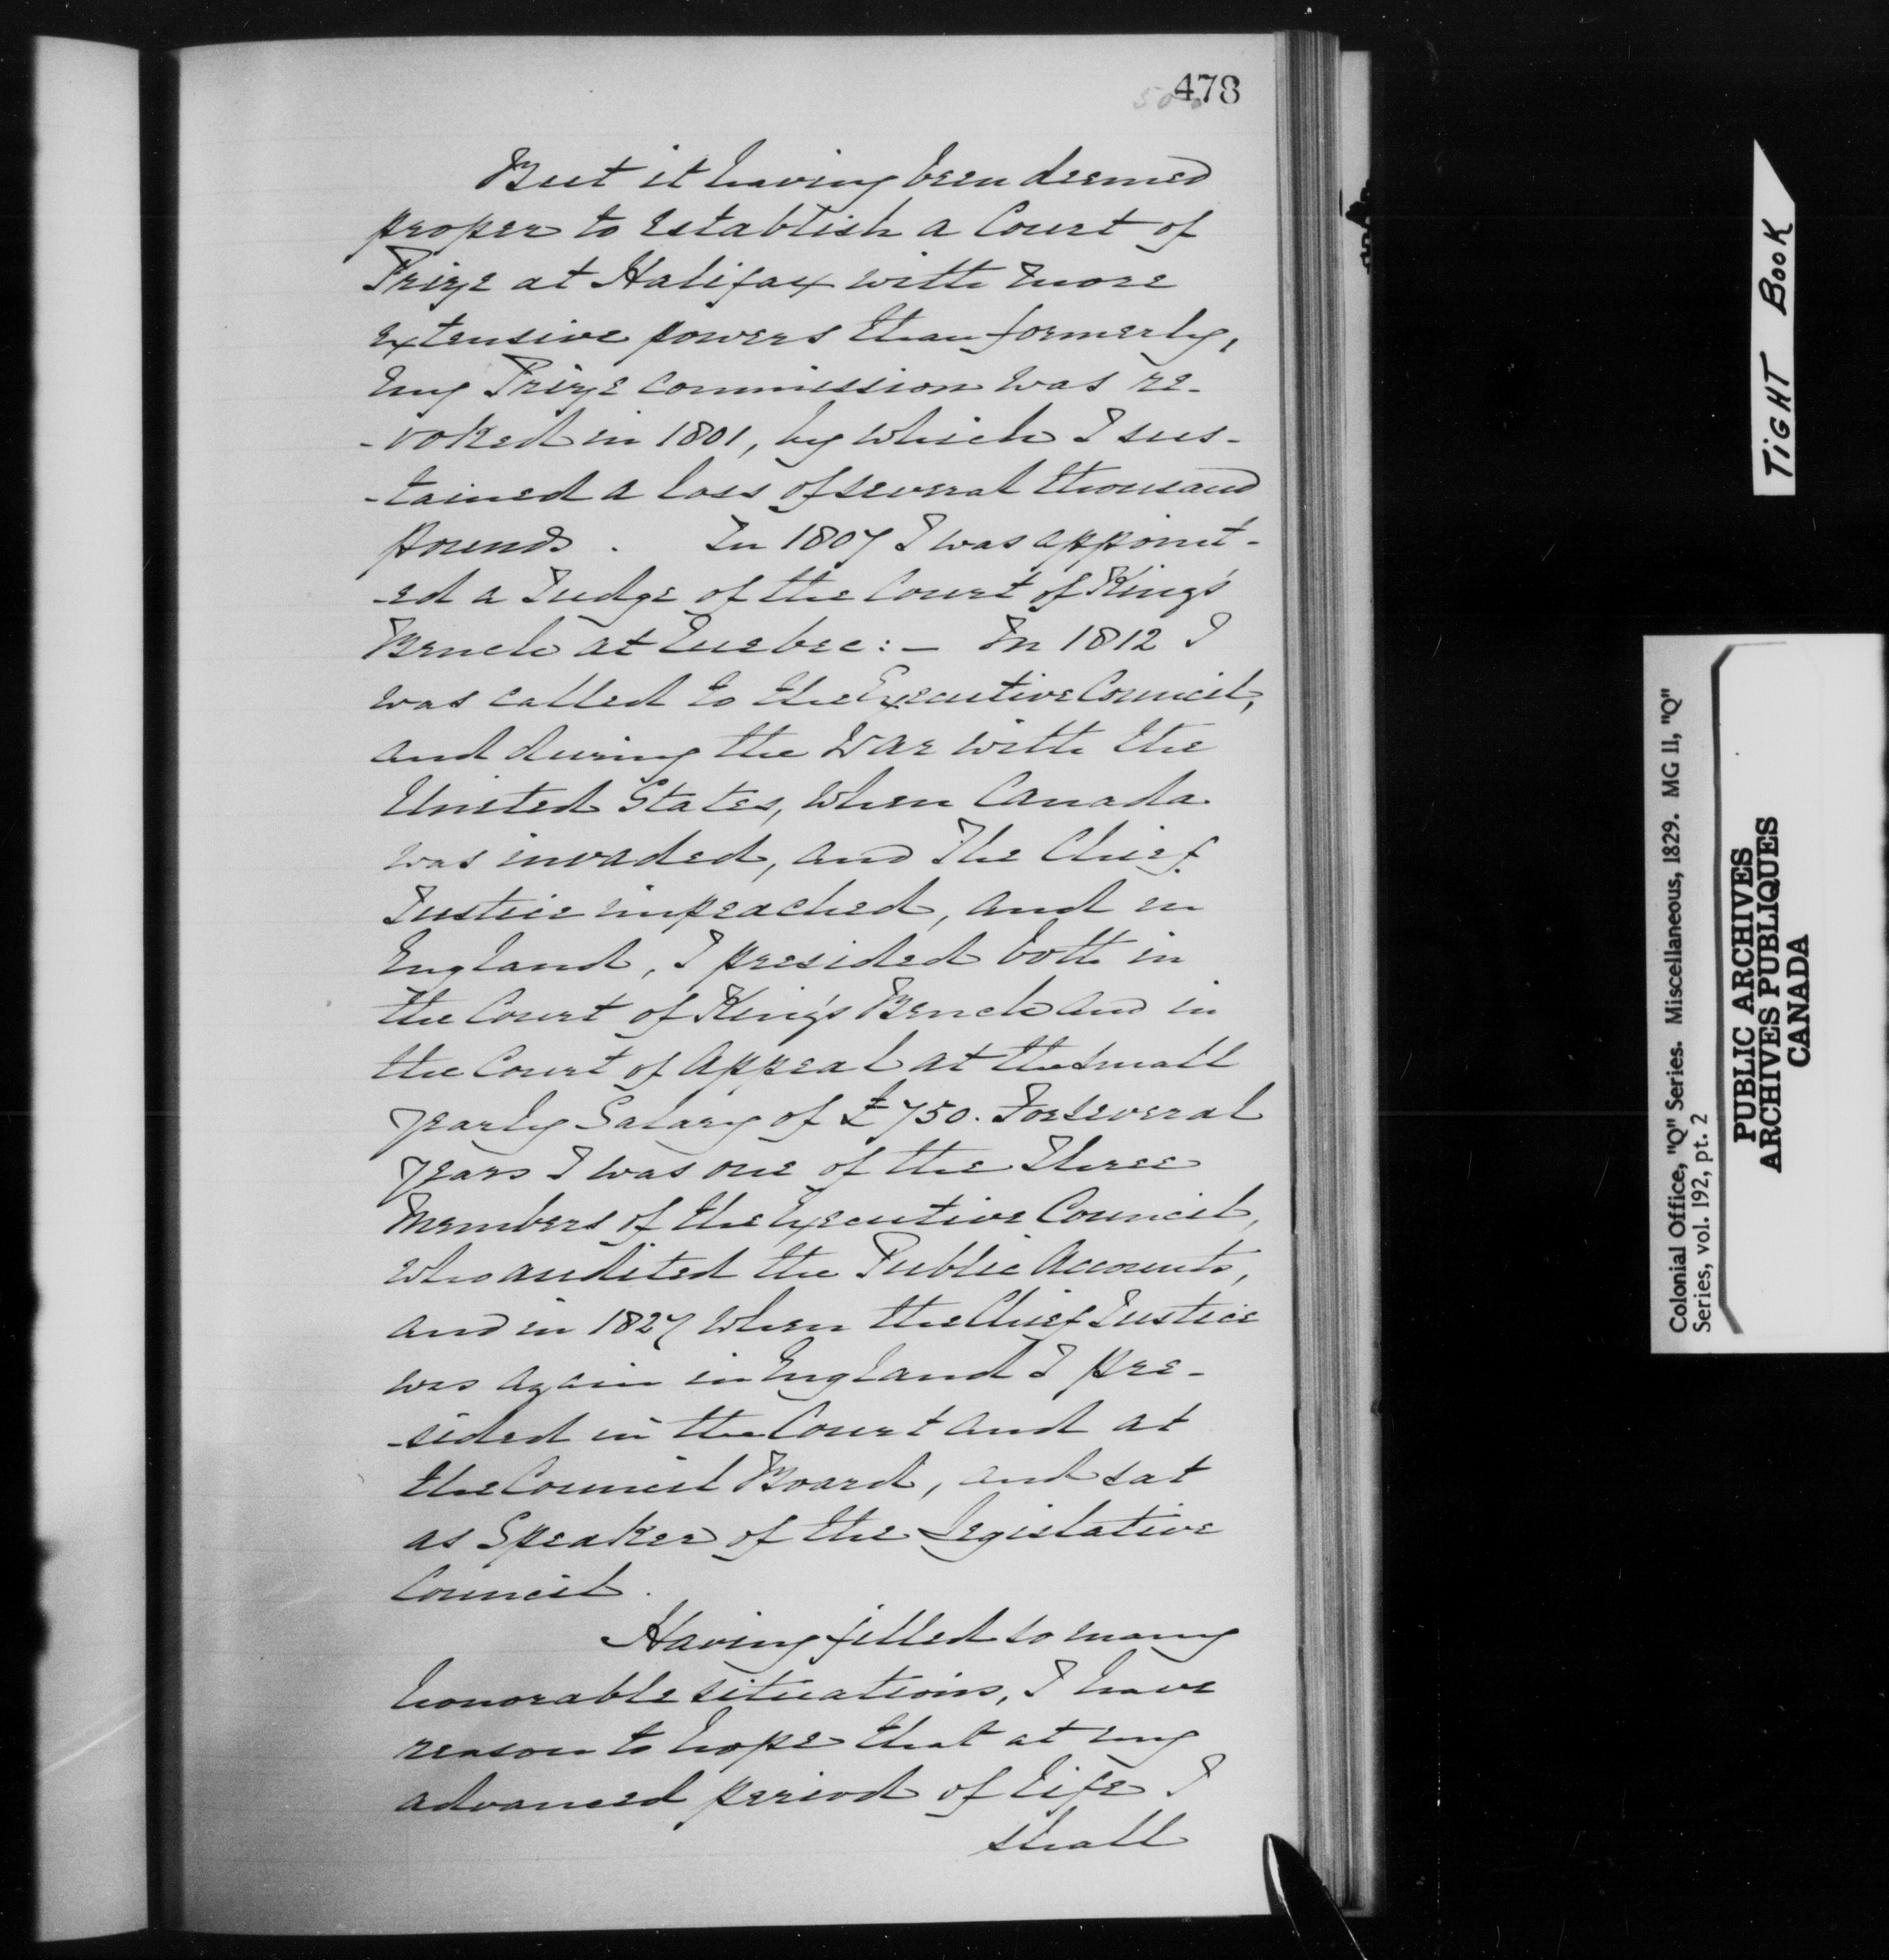 478
But it having been deemed
proper to establish a Court of
Prize at Halifax with more
extensive powers than formerly,
my Prize commission was re-
-voked in 1801, by which I sus-
-tained a loss of several thousand
pounds. In 1807 I was appoint-
-ed a Judge of the Court of King's
Bench at Quebec:- In 1812 I
was called to the Executive Council,
and during the War with the
United States, when Canada
was invaded, and the Chief
Justice impeached, and in
England, I presided both in
the Court of King's Bench and in
the Court of Appeal at the small
yearly Salary of £750. For several
years I was one of the three
Members of the Executive Council,
who audited the Public Accounts,
and in 1827 when the Chief Justice
was again in England I pre-
-sided in the Court and at
the Council Board, and sat
as Speaker of the Legislative
Council.
Having filled so many
honorable situations, I have
reason to hope that at my
advanced period of life I
shall
TIGHT BOOK
Colonial Office, "Q" Series. Miscellaneous, 1829. MG 11, "Q"
Series, vol. 192, pt. 2
PUBLIC ARCHIVES
ARCHIVES PUBLIQUES
CANADA